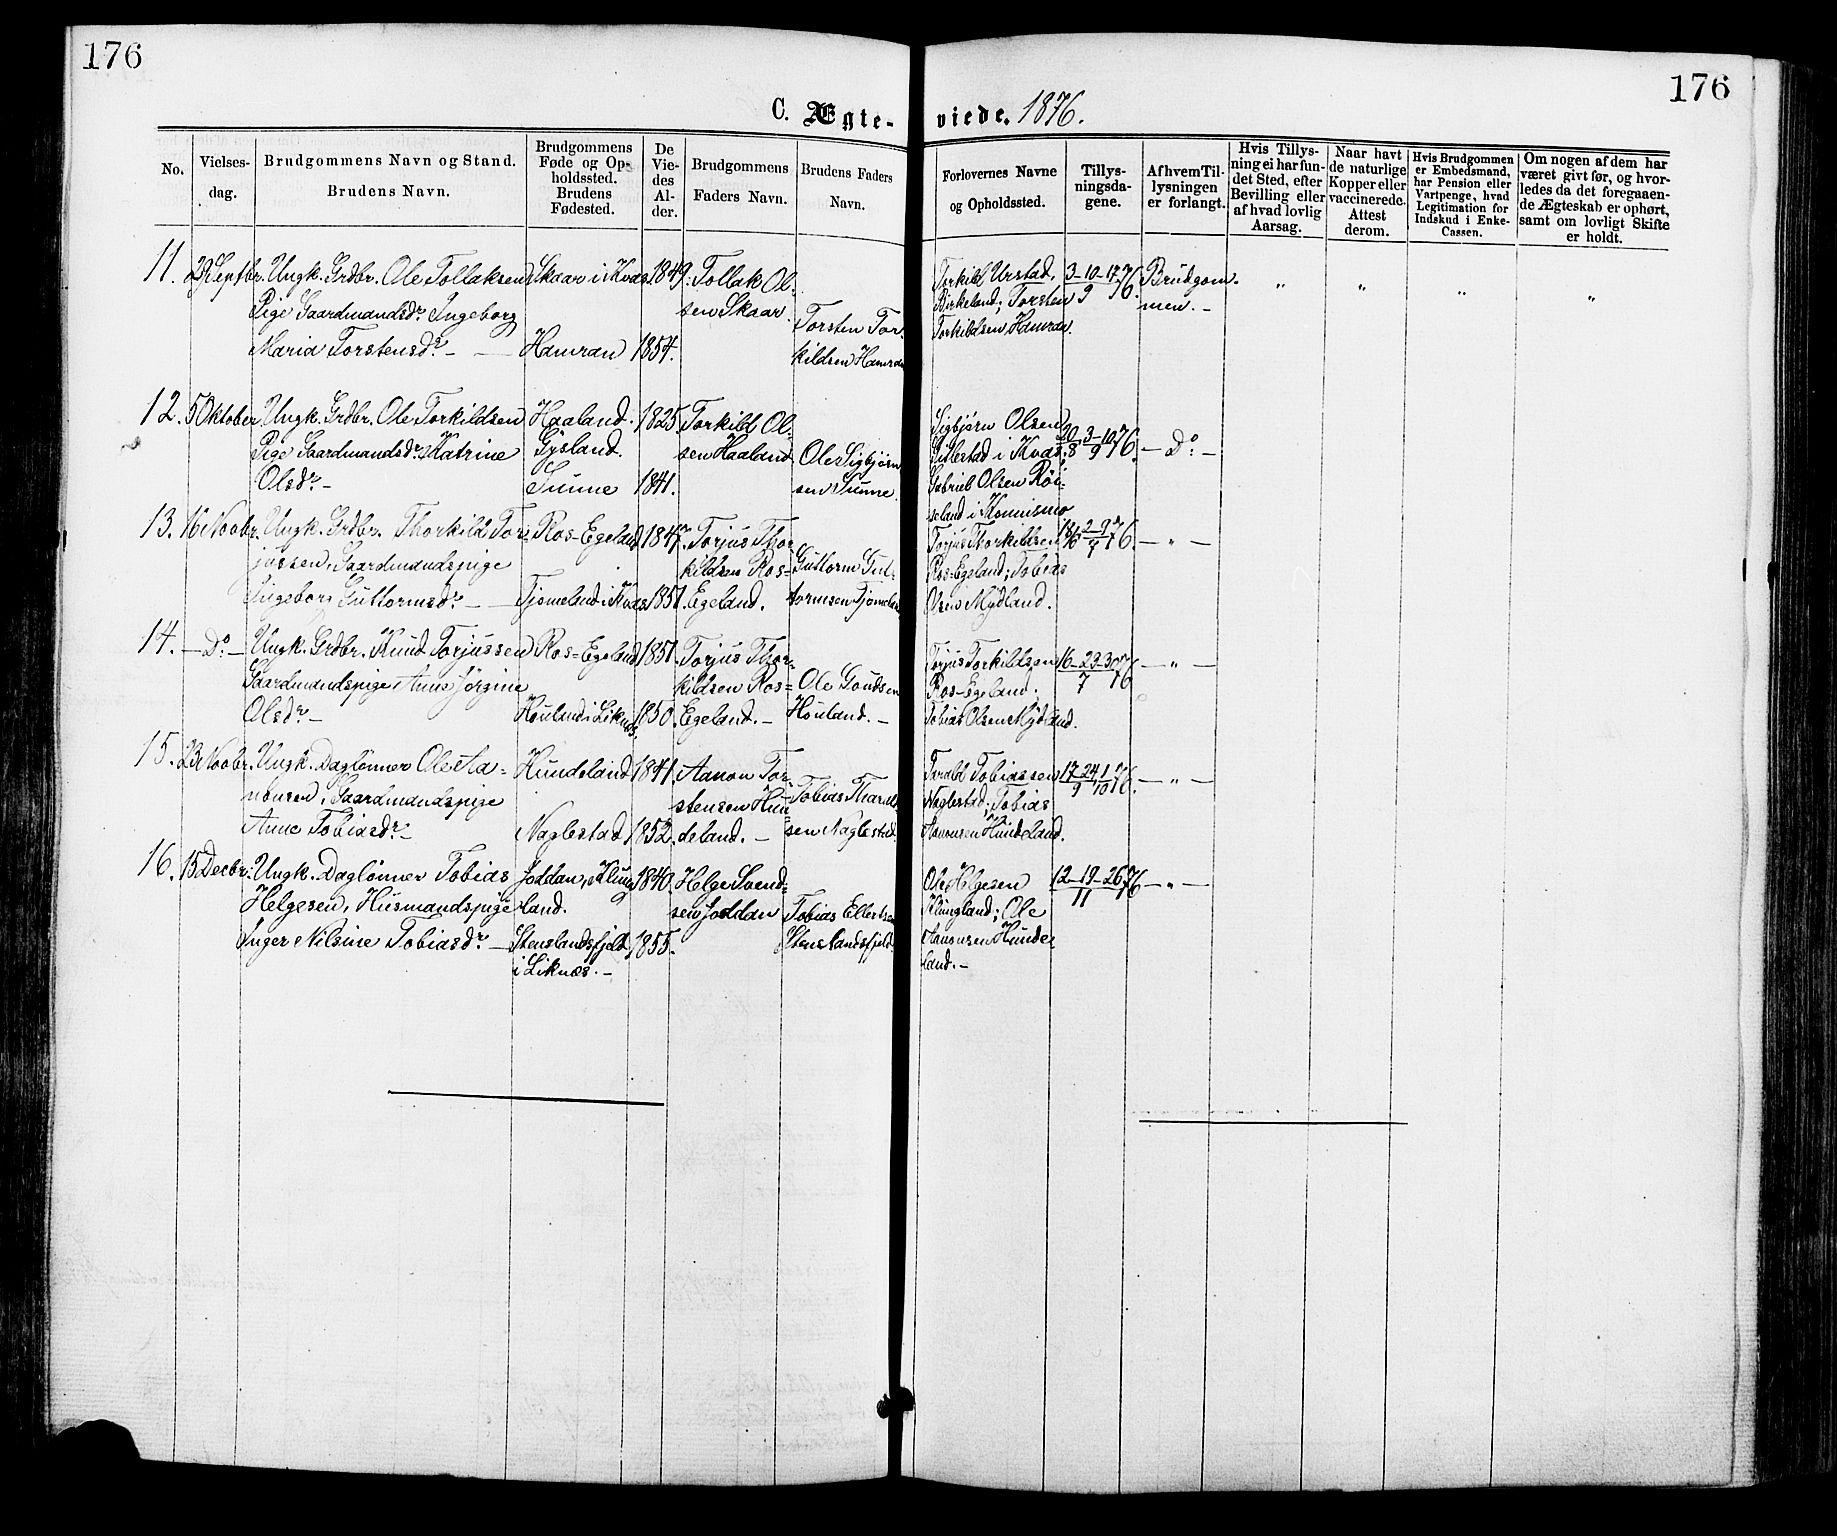 176
176
C. Ægte-viede. 1876.
No.
Vielses-
dag.
Brudgommens Navn og Stand.
Brudens Navn.
Brudgommens
Føde og Op-
holdssted.
Brudens
Fødested.
De
Vie-
des
Al-
der.
Brudgommens
Faders Navn.
Brudens Faders
Navn.
Forlovernes Navne
og Opholdssted.
Tillys-
ningsda-
gene.
Af hvem Til-
lysningen
er forlangt.
Hvis Tillys-
ning ei har fun-
det Sted, efter
Bevilling eller
af hvad lovlig
Aarsag.
Naar havt
de naturlige
Kopper eller
vaccinerede.
Attest
derom.
Hvis Brudgommen
er Embedsmand,
har Pension eller
Vartpenge, hvad
Legitimation for
Indskud i Enke-
Cassen.
Om nogen af dem har
været givt før, og hvor-
ledes da det foregaaen-
de Ægteskab er ophørt,
samt om lovligt Skifte
er holdt.
11.
29 Septbr.
Ungk. Grdbr. Ole Tollaksen
Pige Gaardmandsdr. Ingeborg
Maria Torstensdr. –
Skaar i Kvas.
Hamran
1849.
1854.
Tollak Ol-
sen Skaar.
Torsten Tor-
kildsen Hamran
Torkild Urstad,
Birkeland; Torsten
Torkildsen Hamran.
3–10–17/9 76.
Brudgom-
men. –
„ „ „ „
12.
5 Oktober
Ungk. Grdbr. Ole Torkildsen
Pige Gaardmandsdr. Katrine
Olsdr. –
Haaland.
Gysland.
Sunne
1825.
1841.
Torkild Ol-
sen Haaland
Ole Sigbjørn
sen Sunne.
Sigbjørn Olsen
i Kvas;
Gabriel Olsen Røi-
seland i Konnismo
20/8 3–10/9 76.
– Do. –
13.
16 Novbr.
Ungk. Grdbr. Thorkild Tor-
jussen, Gaardmandspige
Ingeborg Guttormsdr. –
Ros-Egeland
Tjomeland i Kvas
1847.
1851.
Torjus Thor-
kildsen Ros-
Egeland.
Guttorm Gut-
tormsen Tjomeland
Torjus Thorkildsen
Ros-Egeland; Tobias
Olsen Mydland.
76.
– „ –
14.
– Do. –
Ungk. Grdbr. Knud Torjussen
Gaardmandspige Anne Jørgine
Olsdr. –
Ros-Egeland
Houland i Liknes.
1851.
1850.
Torjus Thor-
kildsen Ros-
Egeland. –
Ole
Houland. –
Torjus Torkildsen
Ros-Egeland;
Tobias Olsen Mydland.
16–23–30/7 76
– „ –
15.
23 Novbr.
Ungk. Daglønner Ole Aa-
nonsen, Gaardmandspige
Anne Tobiasdr. –
Hundeland
Naglestad
1841.
1852.
Aanon Tor-
stensen Hun-
deland. –
Tobias Tharald-
sen Naglestad.
Tarald Tobiassen
Naglestad; Tobias
Aanonsen Hundeland.
17–24/9 1/10 76.
– „ –
16.
15 Decbr.
Ungk. Daglønner Tobias
Helgesen, Husmandspige
Inger Nilsine Tobiasdr. –
Joddan, Klung-
land.
Stenslandsfjeld
i Liknes. –
1840.
1855.
Helge Svend-
sen Joddan
Tobias Ellertsen
Stenslandsfjeld.
Ole Helgesen
Klungland; Ole
Aanonsen Hunde-
land. –
12–19–26/11 76
– „ –